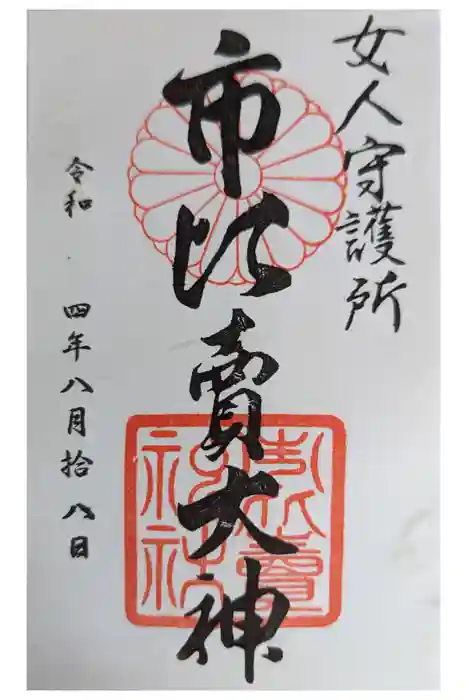 女人守護所
市比賣大神
市比賣神社
令和 四年八月拾八日